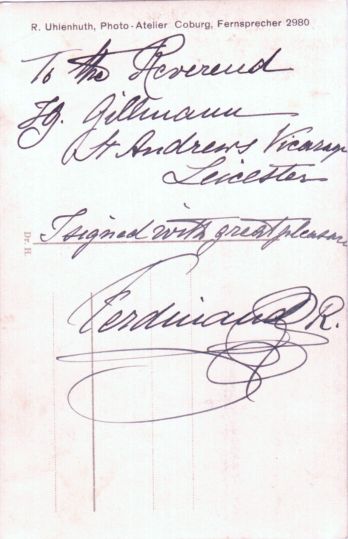 R. Uhlenhuth, Photo-Atelier Coburg, Fernsprecher 2980
To the Reverend
Fg. Gillmann
St Andrews Vicarage
Leicester
I signed with great pleasure
Dr. H.
Ferdinand R.